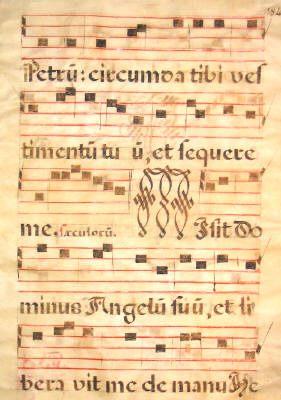 Petrū: circumda tibi ves
timentū tu ū, et sequere
me. sæculorū. Misit Do
minus Angelū suū, et li
bera vit me de manu He